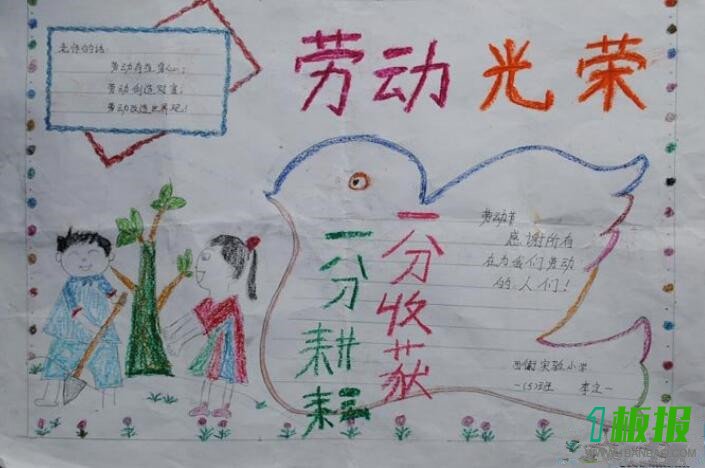 劳动光荣
老师的话:
劳动
劳动创造财富;
劳动改造世界观!
一分耕耘
一分收获
劳动节
感谢所有
在为我们劳动
的人们!
实验小学
一(5)班
1板报
WWW.1BANBAO.COM